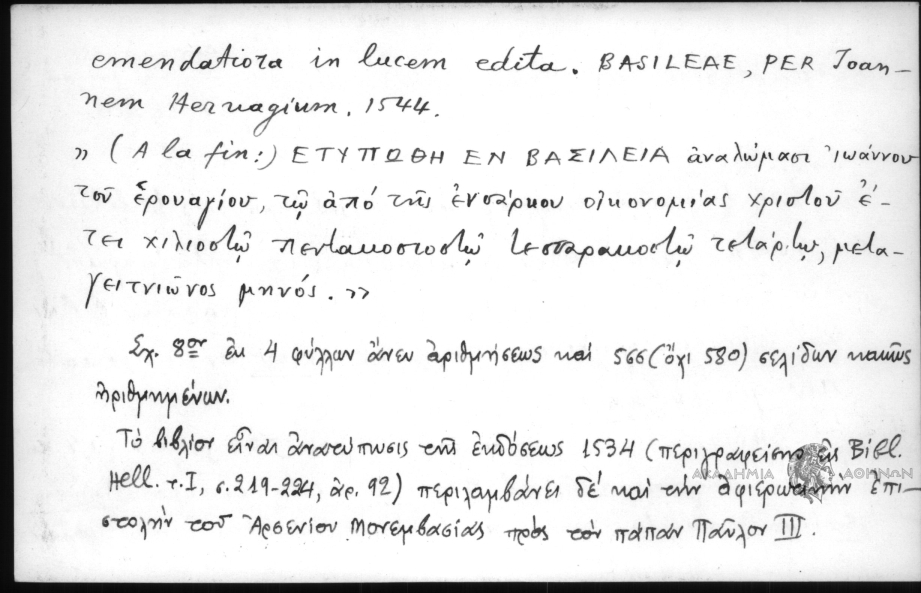 emendatiora in lucem edita. BASILEAE, PER Ioan-
nem Hervagium. 1544.
» (A la fin:) ΕΤΥΠΩΘΗ ΕΝ ΒΑΣΙΛΕΙΑ ἀναλώμασι Ἰωάννου
τοῦ ἑρουαγίου, τῷ ἀπό τῆς ἐνσάρκου οἰκονομίας χριστοῦ ἔ-
τει χιλιοστῷ πεντακοσιοστῷ τεσσαρακοστῷ τετάρτῳ, μετα-
γειτνιῶνος μηνός. »
Σχ. 8ον ἐκ 4 φύλλων ἄνευ ἀριθμήσεως καί 566 (ὄχι 580) σελίδων κακῶς
ἠριθμημένων.
Τό βιβλίον εἶναι ἀνατύπωσις τῆς ἐκδόσεως 1534 (περιγραφείσης ἐν Bibl.
Hell. τ. I, σ. 219-224, ἀρ. 92) περιλαμβάνει δέ καί τήν ἀφιερωτικήν ἐπι-
στολήν τοῦ Ἀρσενίου Μονεμβασίας πρός τόν πάπαν Παῦλον III.
ΑΚΑΔΗΜΙΑ ΑΘΗΝΩΝ